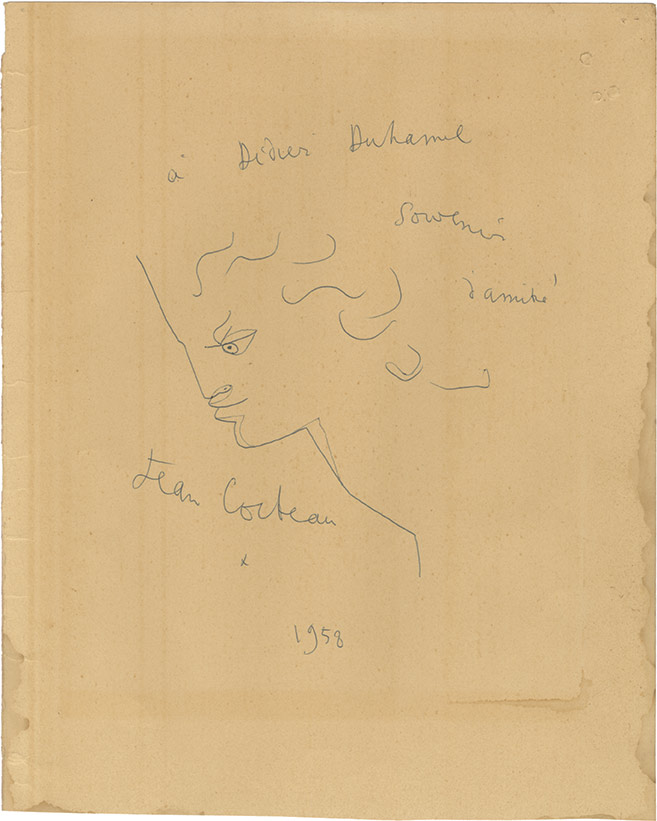 à Didier Duhamel
Souvenir
d'amitié
Jean Cocteau
x
1958